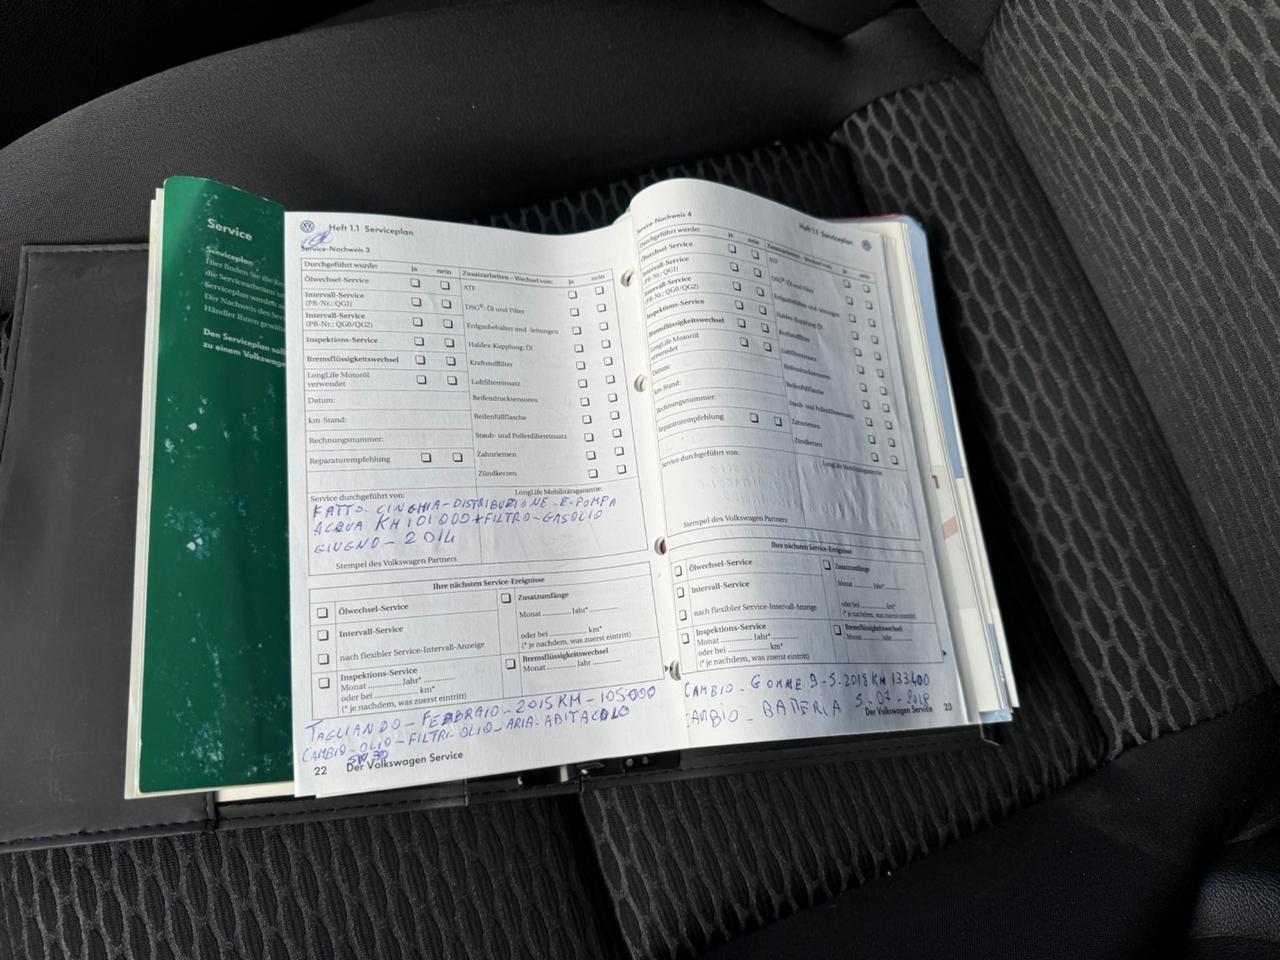 Service
Serviceplan
Hier finden Sie die
die Servicearbeiten
Serviceplan werden
Der Nachweis des
Händler Ihnen
Den Serviceplan
zu einem Volkswagen
Heft 1.1 Serviceplan
Service-Nachweis 3
Durchgeführt wurde: ja nein
Ölwechsel-Service
Intervall-Service
(PR-Nr.: QG1)
Intervall-Service
(PR-Nr.: QG0/QG2)
Inspektions-Service
Bremsflüssigkeitswechsel
LongLife Motoröl
verwendet
Datum:
km-Stand:
Rechnungsnummer:
Reparaturempfehlung
Zusatzarbeiten – Wechsel von: ja nein
ATF
DSG®: Öl und Filter
Erdgasbehälter und -leitungen
Haldex-Kupplung: Öl
Kraftstofffilter
Luftfiltereinsatz
Reifendrucksensoren
Reifenfüllflasche
Staub- und Pollenfiltereinsatz
Zahnriemen
Zündkerzen
Service durchgeführt von:
LongLife Mobilitätsgarantie:
FATTO - CINGHIA - DISTRIBUZIONE - E - POMPA
ACQUA KM 101000 + FILTRO - GASOLIO
GIUGNO - 2014
Stempel des Volkswagen Partners
Ihre nächsten Service-Ereignisse
Ölwechsel-Service
Intervall-Service
nach flexibler Service-Intervall-Anzeige
Inspektions-Service
Monat ............ Jahr* ............
oder bei ............ km*
(* je nachdem, was zuerst eintritt)
Zusatzumfänge
Monat ............ Jahr* ............
oder bei ............ km*
(* je nachdem, was zuerst eintritt)
Bremsflüssigkeitswechsel
Monat ............ Jahr ............
TAGLIANDO - FEBBRAIO - 2015 KM - 105000
CAMBIO - OLIO - FILTRI - OLIO - ARIA - ABITACOLO
5W30
22 Der Volkswagen Service
Service-Nachweis 4
Heft 1.1 Serviceplan
Durchgeführt wurde: ja nein
Ölwechsel-Service
Intervall-Service
(PR-Nr.: QG1)
Intervall-Service
(PR-Nr.: QG0/QG2)
Inspektions-Service
Bremsflüssigkeitswechsel
LongLife Motoröl
verwendet
Datum:
km-Stand:
Rechnungsnummer:
Reparaturempfehlung
Zusatzarbeiten – Wechsel von: ja nein
ATF
DSG®: Öl und Filter
Erdgasbehälter und -leitungen
Haldex-Kupplung: Öl
Kraftstofffilter
Luftfiltereinsatz
Reifendrucksensoren
Reifenfüllflasche
Staub- und Pollenfiltereinsatz
Zahnriemen
Zündkerzen
Service durchgeführt von:
LongLife Mobilitätsgarantie:
Stempel des Volkswagen Partners
Ihre nächsten Service-Ereignisse
Ölwechsel-Service
Intervall-Service
nach flexibler Service-Intervall-Anzeige
Inspektions-Service
Monat ............ Jahr* ............
oder bei ............ km*
(* je nachdem, was zuerst eintritt)
Zusatzumfänge
Monat ............ Jahr* ............
oder bei ............ km*
(* je nachdem, was zuerst eintritt)
Bremsflüssigkeitswechsel
Monat ............ Jahr ............
CAMBIO - GOMME 9-5-2018 KM 133400
CAMBIO - BATTERIA 5-07-2018
Der Volkswagen Service 23